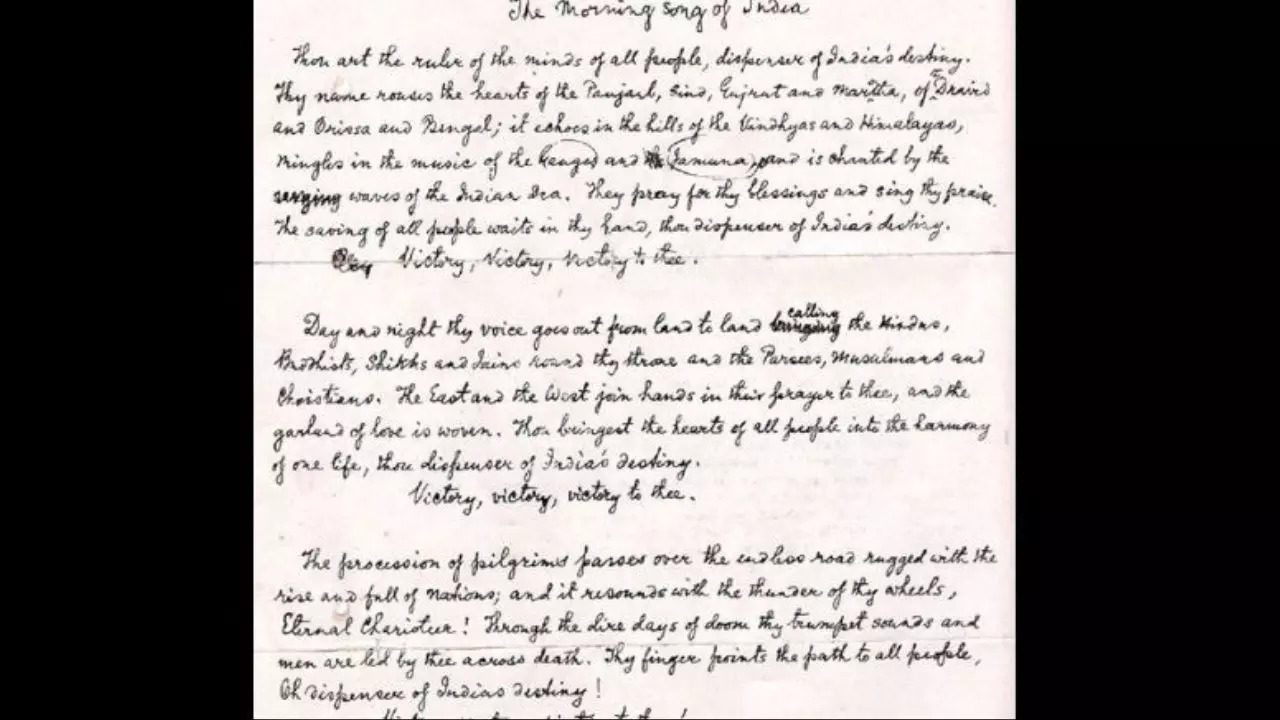 The Morning song of India
Thou art the ruler of the minds of all people, dispenser of India's destiny.
Thy name rouses the hearts of the Panjaub, Sind, Gujrat and Martha, of Dravid
and Orissa and Bengal; it echoes in the hills of the Vindhyas and Himalayas,
mingles in the music of the Ganges and Jamuna, and is chanted by the
surging waves of the Indian Sea. They pray for thy blessings and sing thy praise.
The saving of all people waits in thy hand, thou dispenser of India's destiny.
Victory, Victory, Victory to thee.
Day and night thy voice goes out from land to land calling the Hindus,
Buddhists, Shikhs and Jains round thy throne and the Parsees, Musulmans and
Christians. The East and the West join hands in their prayer to thee, and the
garland of love is woven. Thou bringest the hearts of all people into the harmony
of one life, thou dispenser of India's destiny.
Victory, victory, victory to thee.
The procession of pilgrims passes over the endless road rugged with the
rise and fall of nations; and it resounds with the thunder of thy wheels,
Eternal Charioteer! Through the dire days of doom thy trumpet sounds and
men are led by thee across death. Thy finger points the path to all people,
Oh dispenser of Indias destiny!